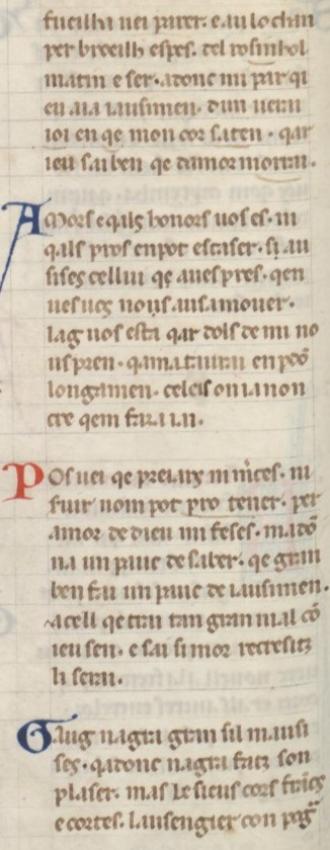 fueilha uei parer. e au lo chan
per broeilh espes. del rosinhol
matin e ser. adonc mi par qi
eu aia iausimen. dun uerai
ioi en qe mon cor saten. qar
ieu sai ben qe damor morrai.
Amors e qals honors uos es. ni
qals pros en pot escaser. si au
sises cellui qe aues pres. qen
ues uos nous ausa mouer.
lag uos esta qar dols de mi no
us pren. qamat aurai en perdō
longamen. celeis on ia non
cre qem farai ai.
Pos uei qe preiars ni mces. ni
seruir nom pot pro tener. per
amor de dieu mi feses. ma dō
na un pauc de saber. qe gran
ben fai un pauc de iausimen.
acell qe trai tan gran mal cō
ieu sen. e sai si mor recresitz
li serai.
Gaug nagra gran sil mausi
ses. qadonc nagra faiz son
plaser. mas le sieus cors francs
e cortes. lausengier con pag